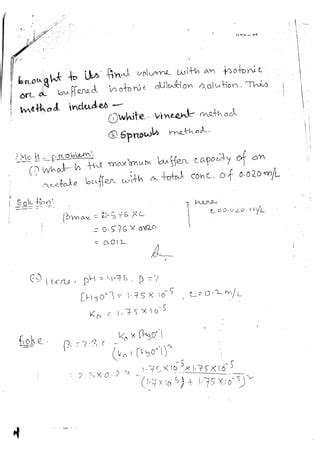 brought to its final volume with an isotonic
or a buffered isotonic dilution solution. This
method includes —
① White-vincent method
② Sprowls method.
Math problem:
① What is the maximum buffer capacity of an
acetate buffer with a total conc. of 0.020 m/L
Solution:
here,
βmax = 0.576 x C
c = 0.020 m/L
= 0.576 x 0.020
= 0.012
② Here, pH = 4.76, β = ?
[H3O+] = 1.75 x 10^-5, c = 0.2 m/L
Ka = 1.75 x 10^-5
β = 2.3 c Ka x [H3O+] / (Ka + [H3O+])^2
= 2.3 x 0.2 x 1.75 x 10^-5 x 1.75 x 10^-5 / (1.7 x 10^-5) + 1.75 x 10^-5)^2